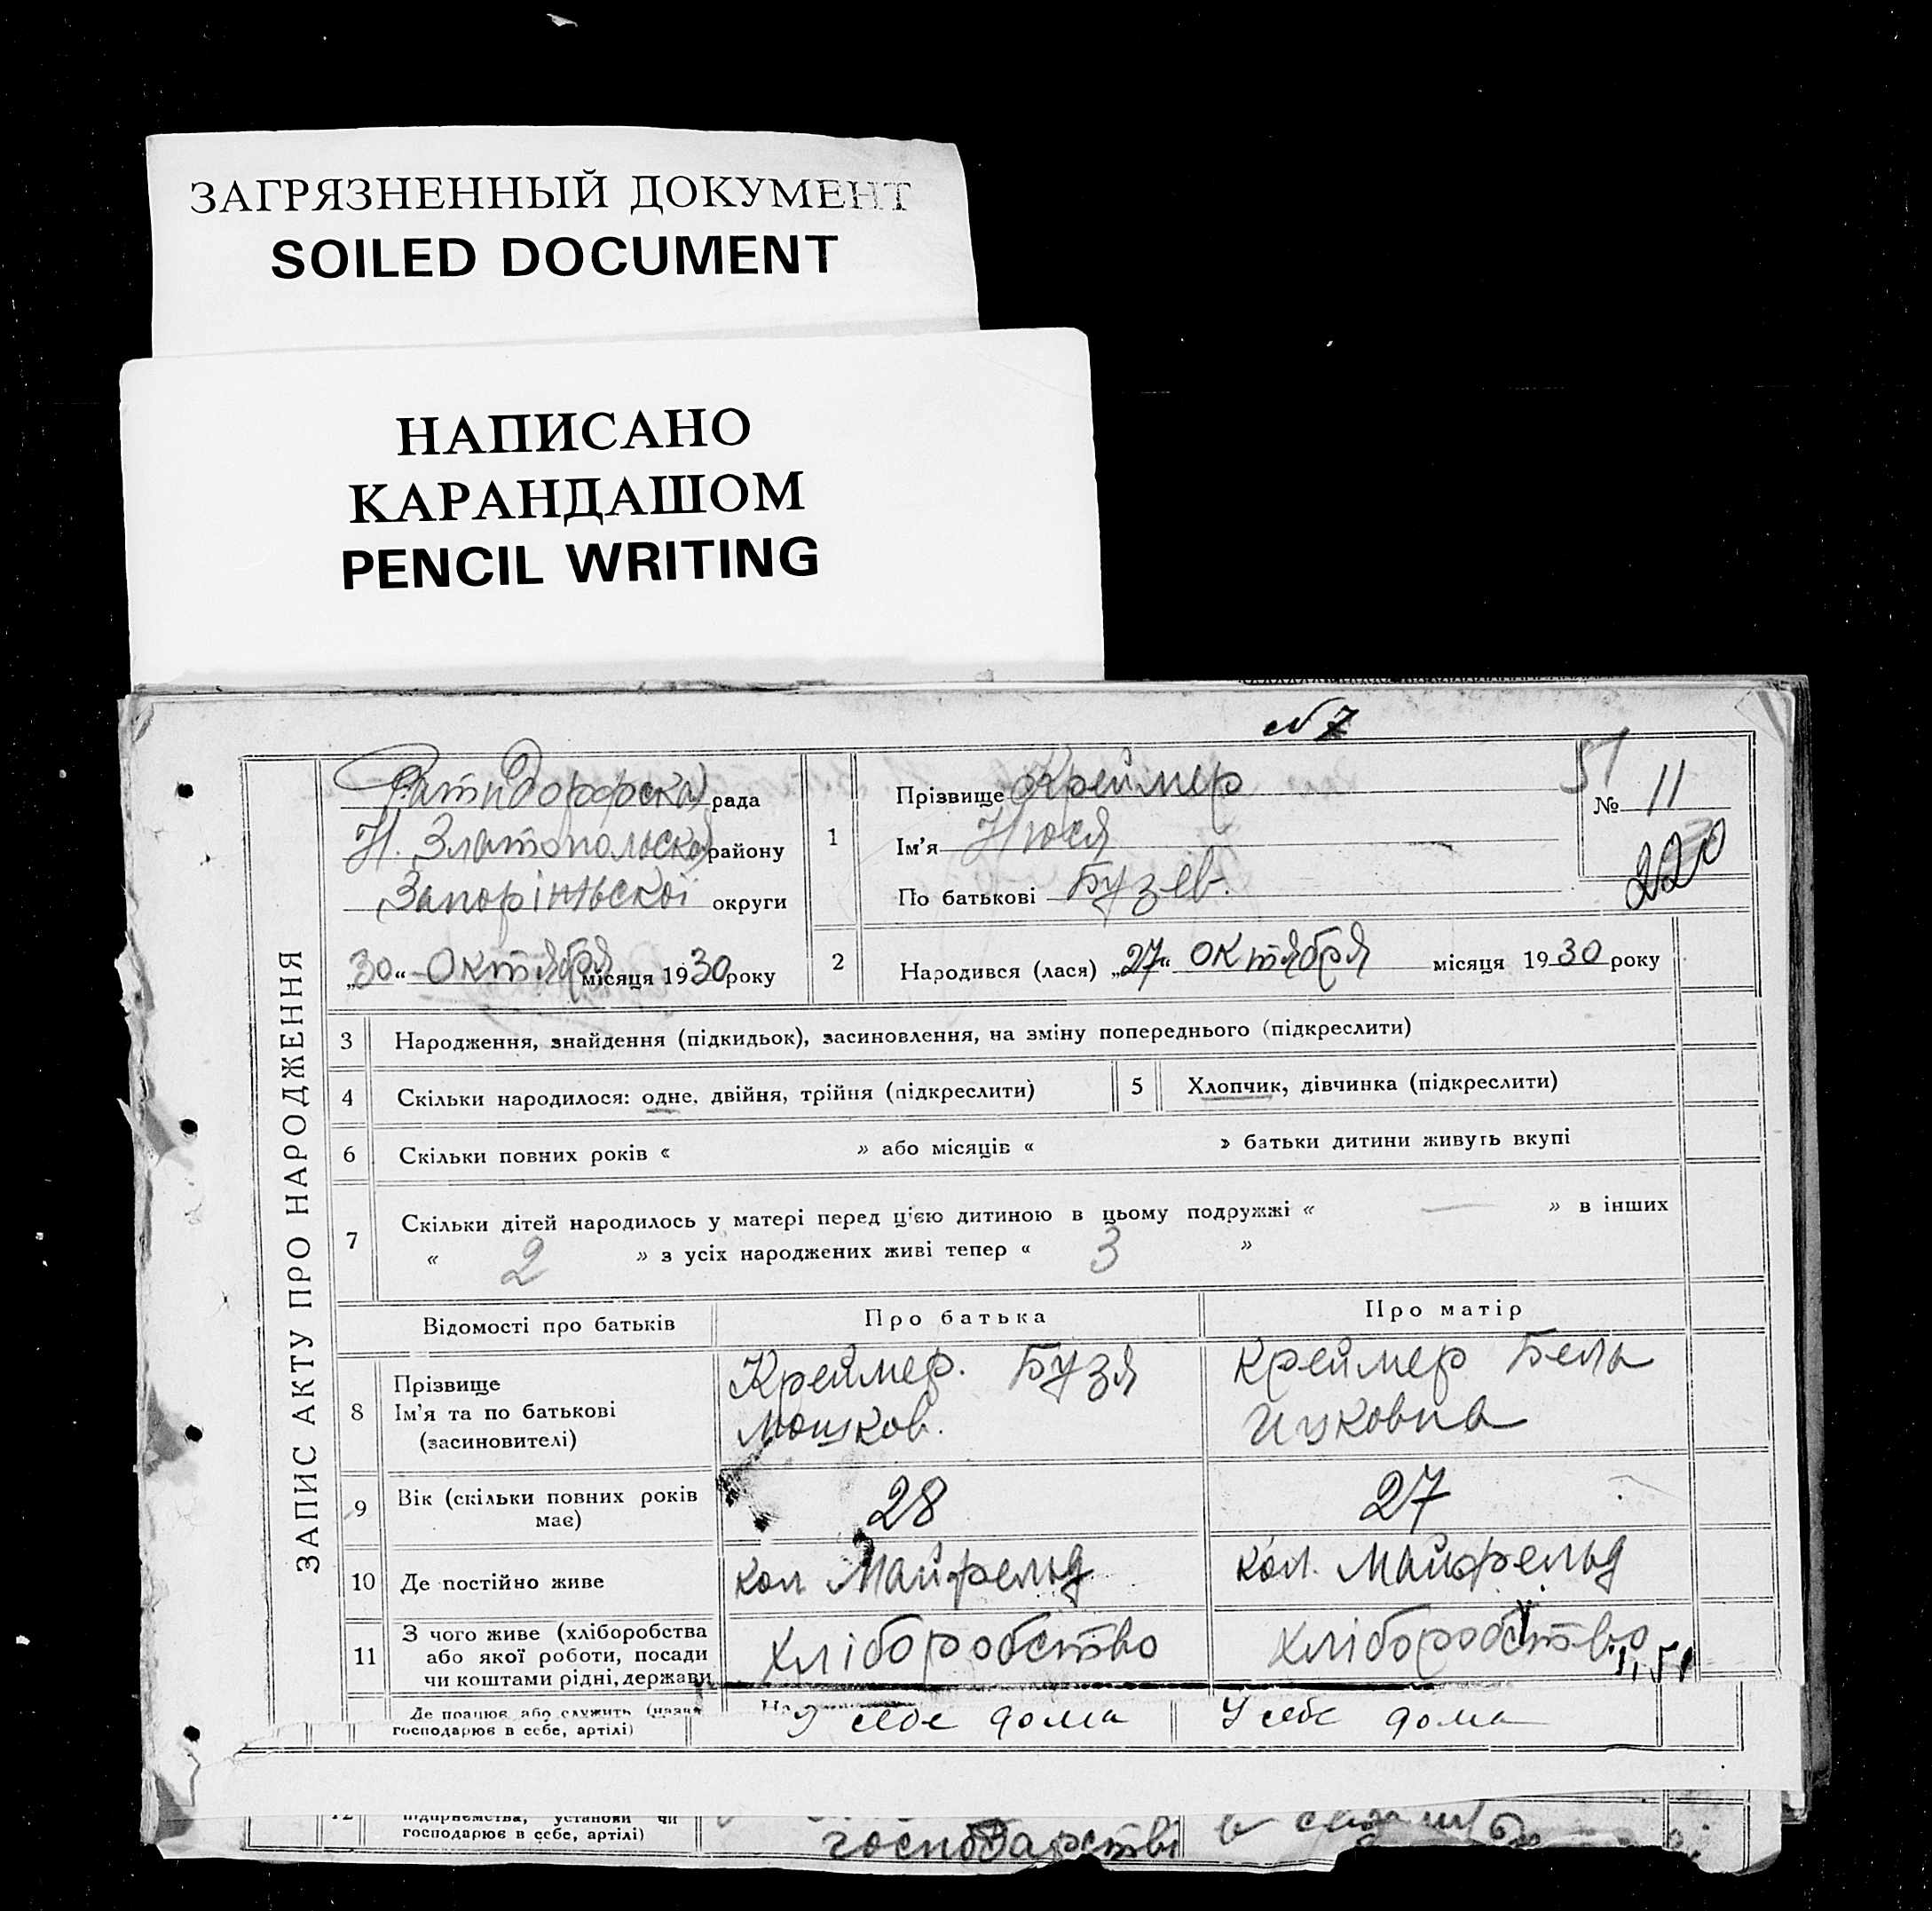 ЗАГРЯЗНЕННЫЙ ДОКУМЕНТ
SOILED DOCUMENT
НАПИСАНО
КАРАНДАШОМ
PENCIL WRITING
№ 7
ЗАПИС АКТУ ПРО НАРОДЖЕННЯ
рада
Н. Златопольска району
Запоріньскої округи
„30“ Октября місяця 1930 року
1
Прізвище Креймер
Ім'я Нюся
По батькові Бузев.
51
№ 11
220
2
Народився (лася) „27“ Октября місяця 1930 року
3 Народження, знайдення (підкидьок), засиновлення, на зміну попереднього (підкреслити)
4 Скільки народилося: одне, двійня, трійня (підкреслити) 5 Хлопчик, дівчинка (підкреслити)
6 Скільки повних років « » або місяців « » батьки дитини живуть вкупі
7 Скільки дітей народилось у матері перед цією дитиною в цьому подружжі « — » в інших
« 2 » з усіх народжених живі тепер « 3 »
Відомості про батьків Про батька Про матір
8 Прізвище
Ім'я та по батькові
(засиновителі)
Креймер. Бузя
Мошков.
Креймер Бела
Ицковна
9 Вік (скільки повних років
має)
28 27
10 Де постійно живе кол Майфельд кол. Майфельд
11 З чого живе (хліборобства
або якої роботи, посади
чи коштами рідні, держави
хліборобство хліборобство
Де працює або служить (назва
господарює в себе, артілі)
У себе дома У себе дома
12 підприємства, установи чи
господарює в себе, артілі)
господарстві